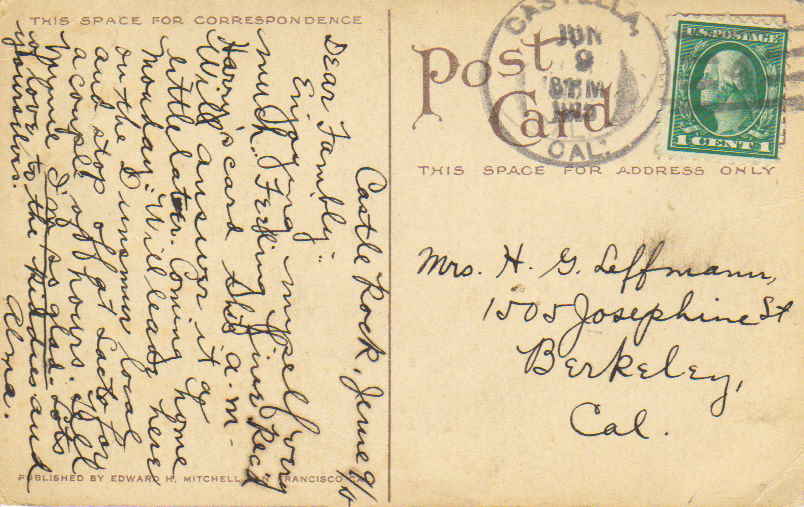 THIS SPACE FOR CORRESPONDENCE
Castle Rock, June 9/
Dear Fambly:
Enjoying myself very
much. Feeling fine. Rec'd
Harry's card this a.m.
Will answer it a
little later. Coming home
Monday. Will leave here
on the Dunsmuir local
and stop off at Sacto for
a couple of hours. Tell
I'm so glad. Lots
of love to the kiddies and
yourselves.
Alma.
PUBLISHED BY EDWARD H. MITCHELL, SAN FRANCISCO, CAL.
Post Card
CASTELLA,
JUN
9
8 PM
CAL.
U.S. POSTAGE
1 CENT 1
THIS SPACE FOR ADDRESS ONLY
Mrs. H. G. Leffmann,
1505 Josephine St
Berkeley,
Cal.